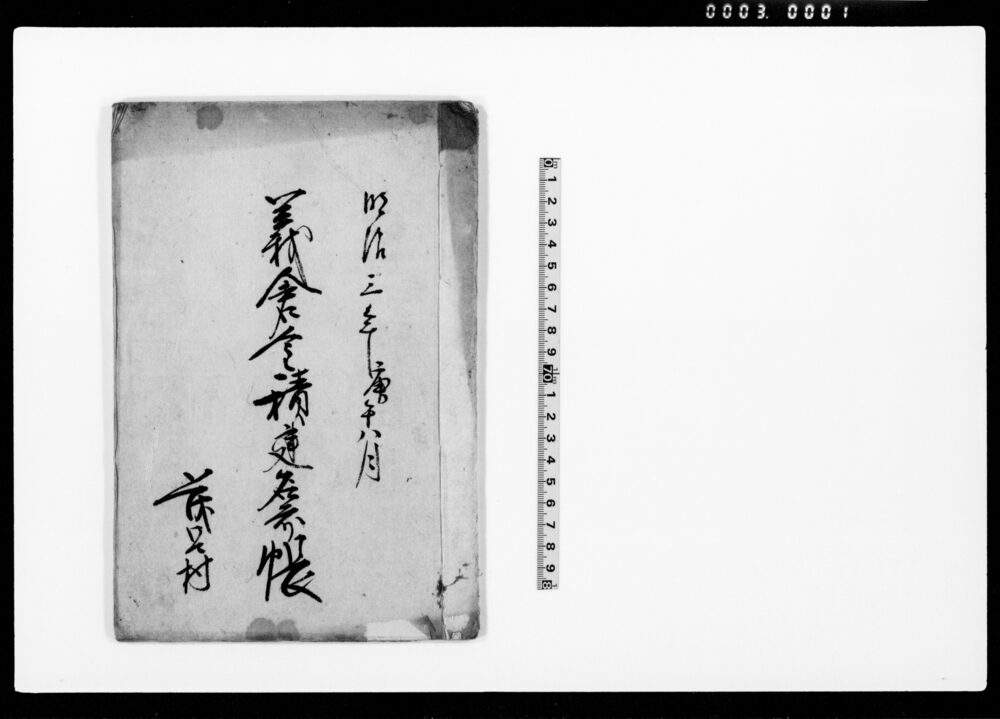 0003. 0001
明治三年庚午八月
義倉金積建名前帳
茂呂村
0 1 2 3 4 5 6 7 8 9 10 1 2 3 4 5 6 7 8 9